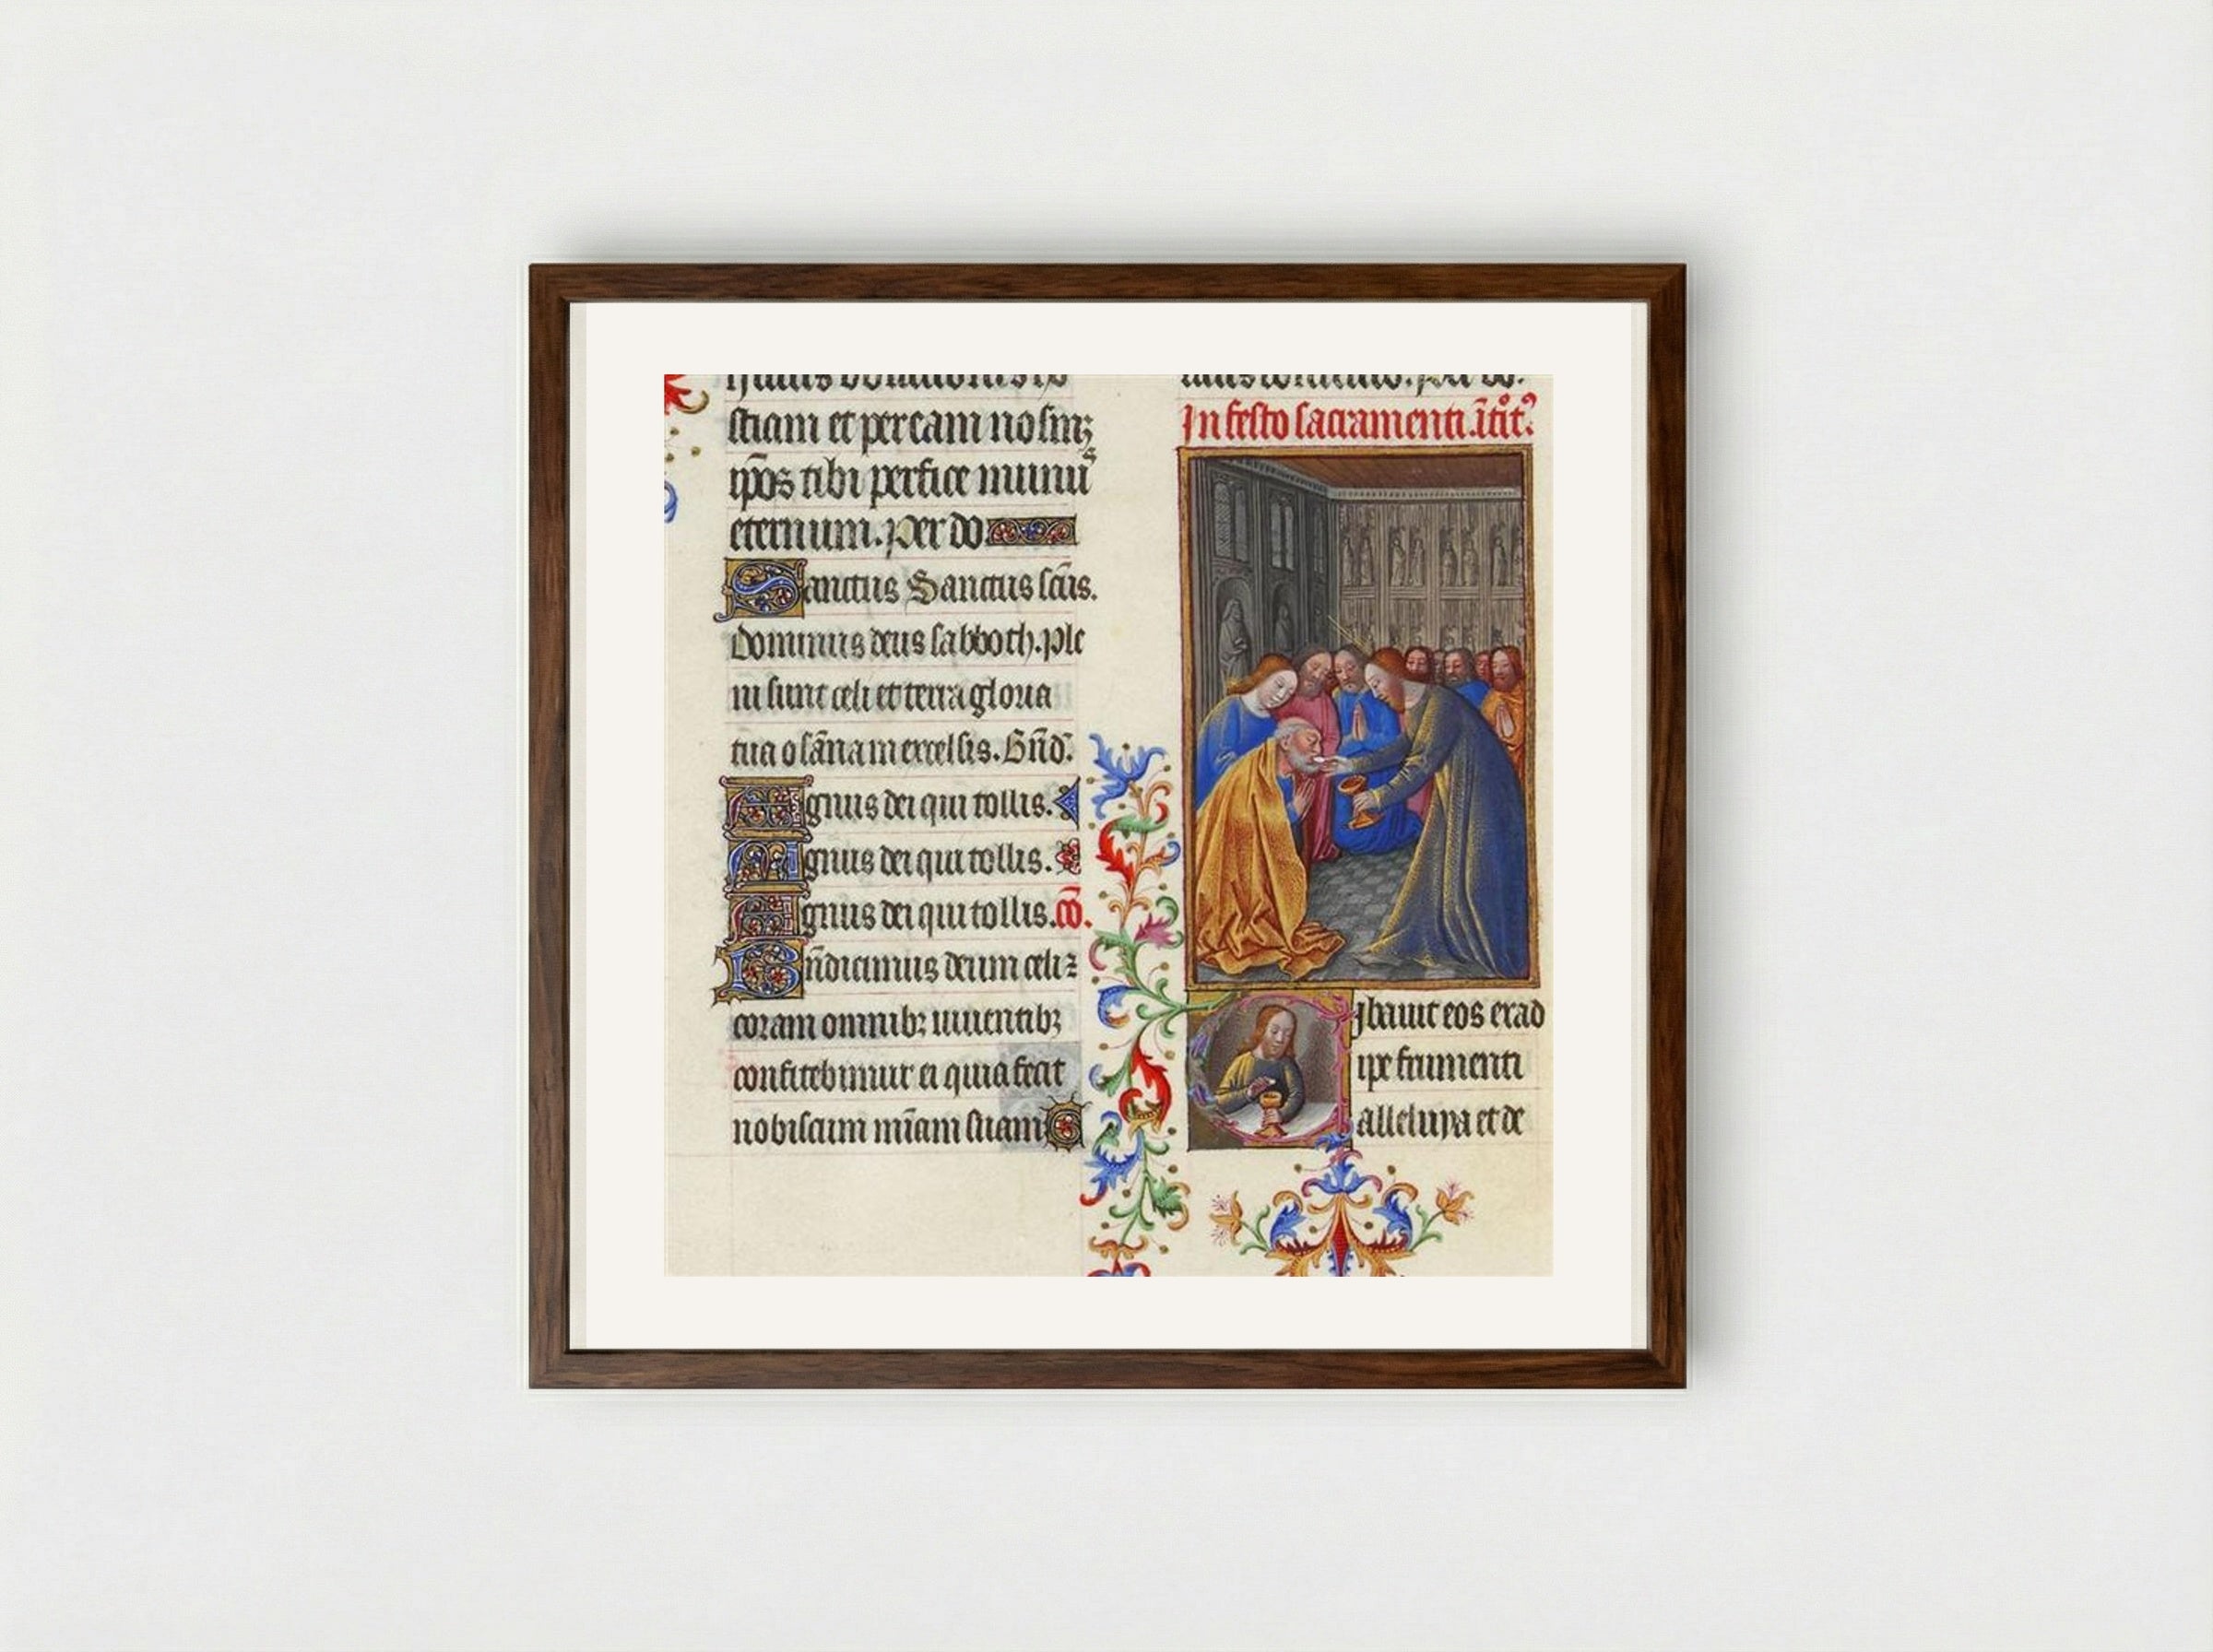 stiam et per eam nosmꝫ
ip̄os tibi perfice munuˢ
eternum. Per do
Sanctus Sanctus sc̄us.
dominus deus sabboth. Ple
ni sunt celi et terra gloria
tua osāna in excelsis. Bn̄d.
Agnus dei qui tollis.
Agnus dei qui tollis.
Agnus dei qui tollis. cō.
Bn̄dicimus deum celi ⁊
coram omnibꝫ uiuentibꝫ
confitebimur ei quia fecit
nobiscum mīam suam
In festo sacramenti.
Cibauit eos ex ad
ipe frumenti
alleluya et de